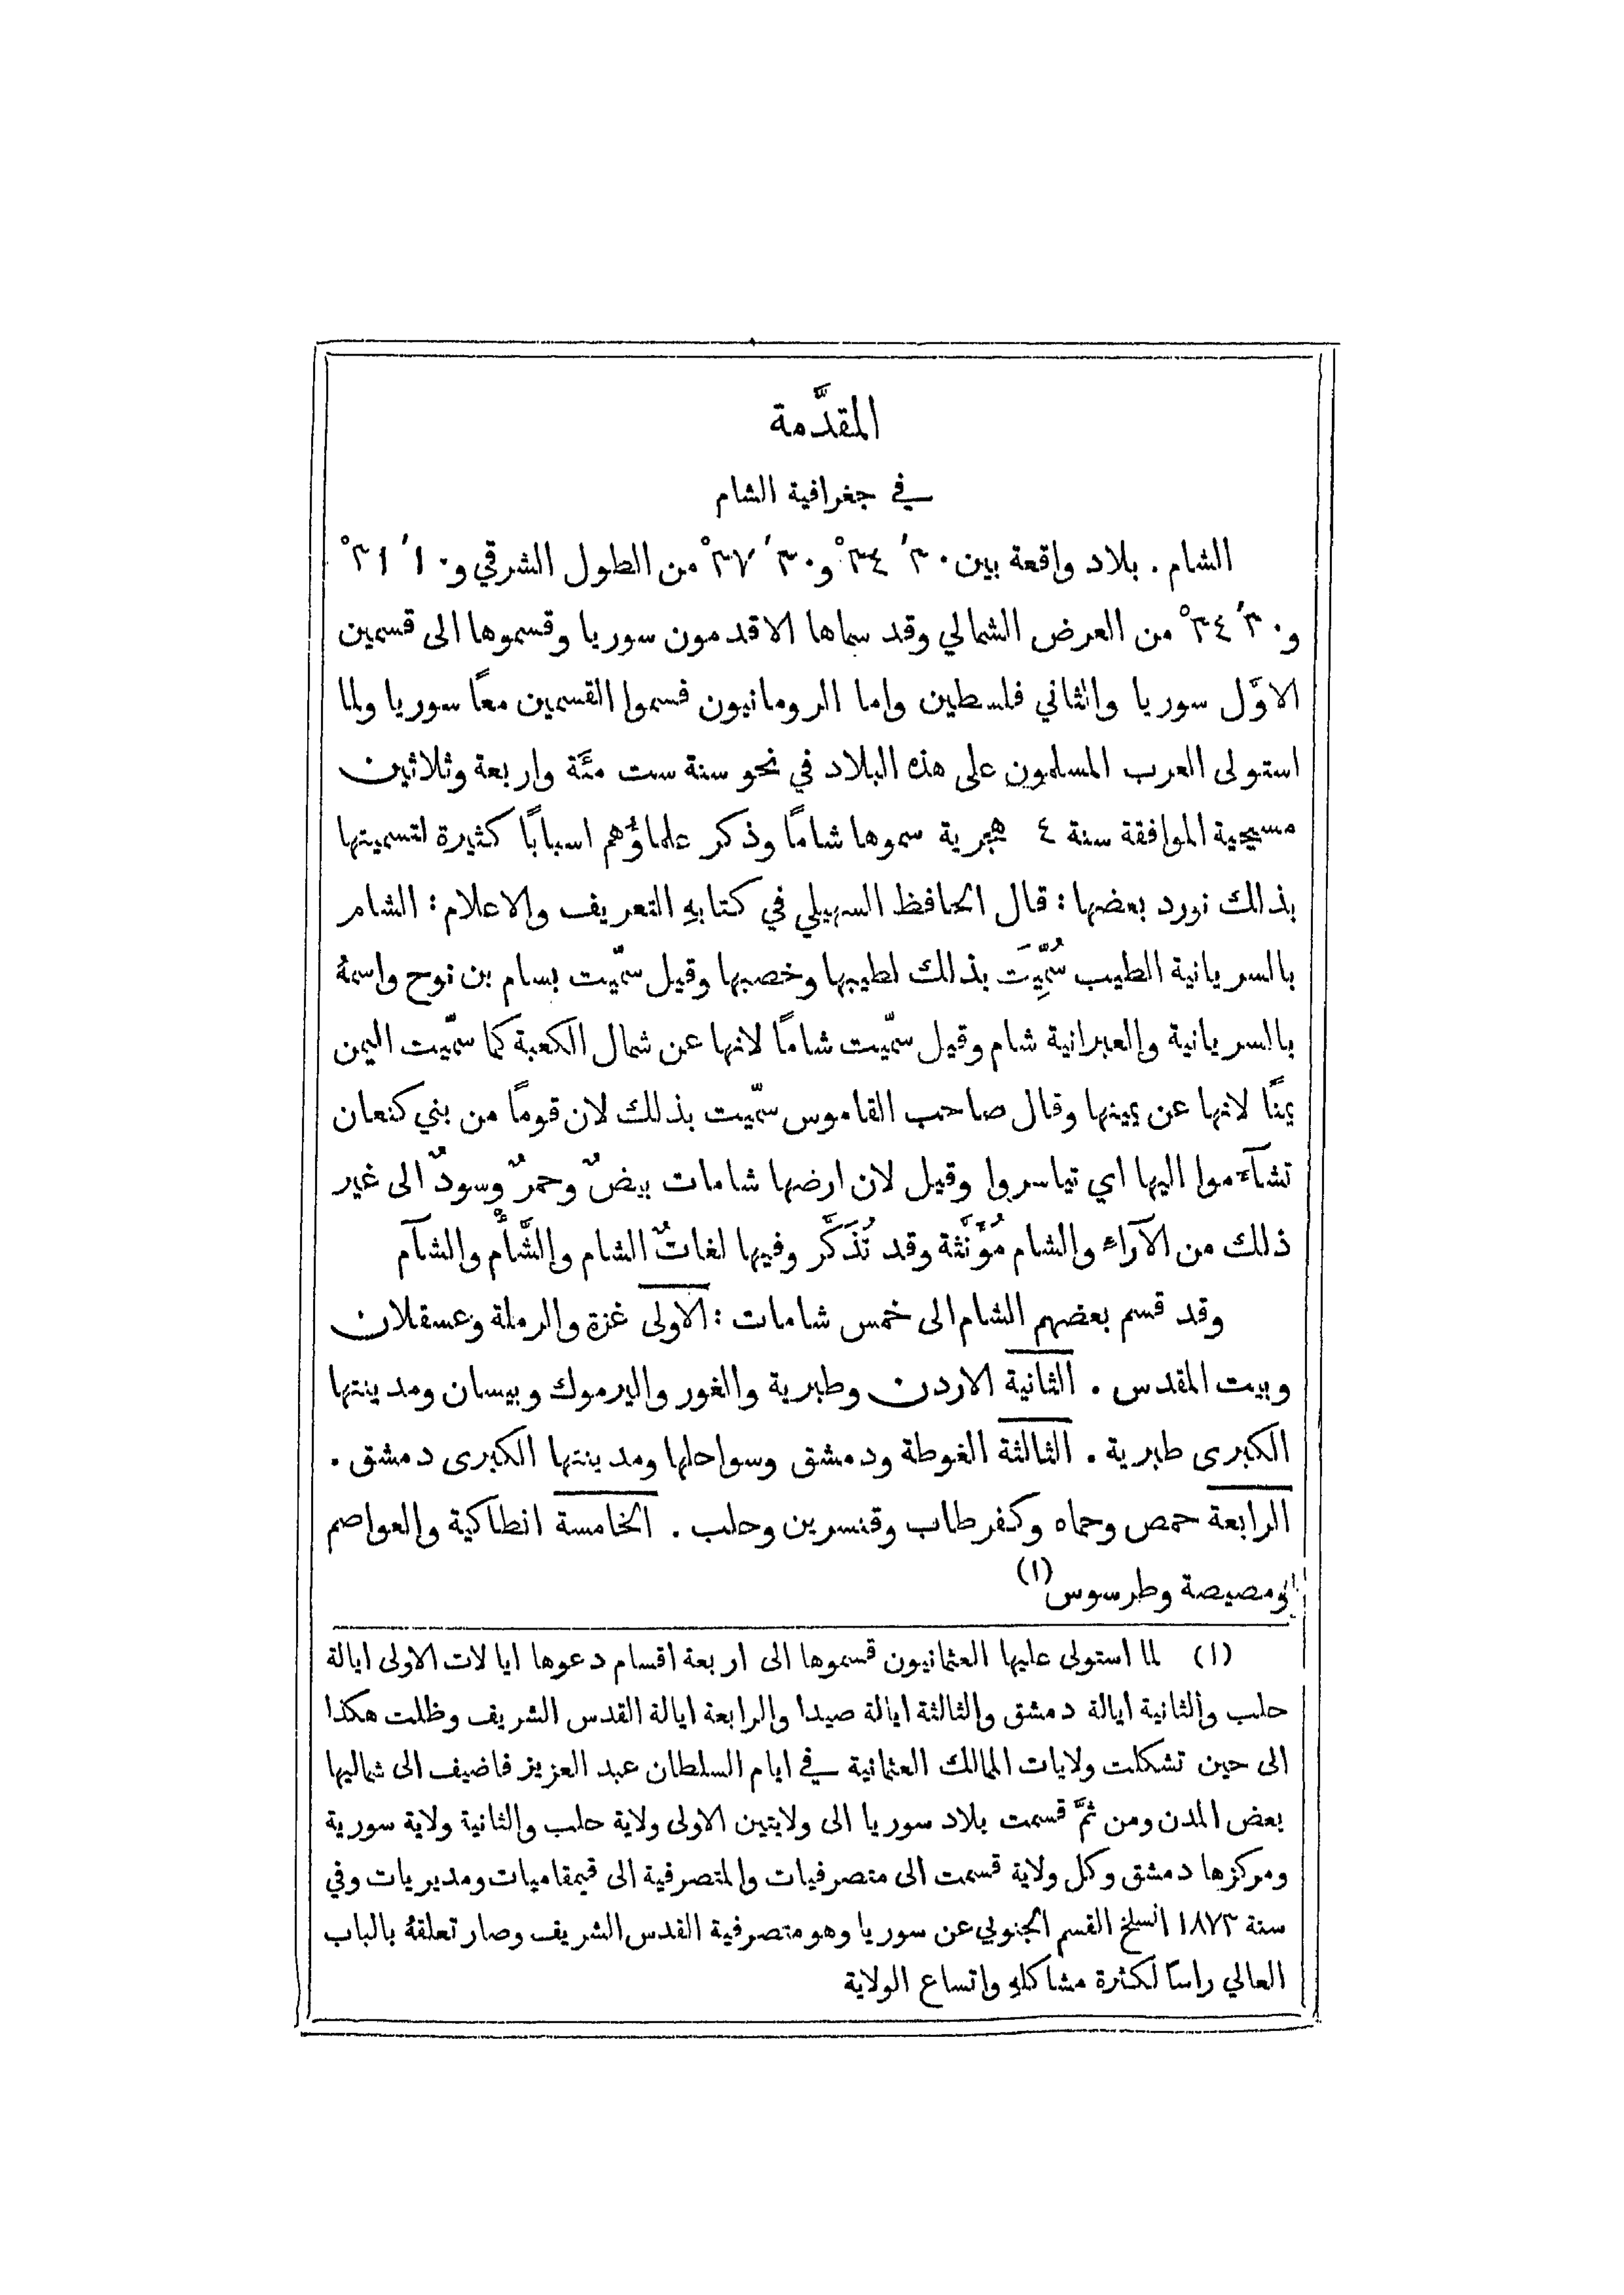 المقدَّمة
في جغرافية الشام
الشام . بلاد واقعة بين ٣٠َ ٣٤° و٣٠َ ٣٧° من الطول الشرقي و١٠َ ٣١°
و٣٠َ ٣٤° من العرض الشمالي وقد سماها الاقدمون سوريا وقسموها الى قسمين
الاوَّل سوريا والثاني فلسطين واما الرومانيون فسموا القسمين معًا سوريا ولما
استولى العرب المسلمون على هذه البلاد في نحو سنة ست مئة واربعة وثلاثين
مسيحية الموافقة سنة ٤ هجرية سموها شامًا وذكر علماؤُهم اسبابًا كثيرة لتسميتها
بذلك نورد بعضها : قال الحافظ السهيلي في كتابهِ التعريف والاعلام : الشام
بالسريانية الطيب سُمِّيَت بذلك لطيبها وخصبها وقيل سمّيت بسام بن نوح واسمهُ
بالسريانية والعبرانية شام وقيل سمّيت شامًا لانها عن شمال الكعبة كما سمّيت اليمن
يمنًا لانها عن يمينها وقال صاحب القاموس سمّيت بذلك لان قومًا من بني كنعان
تشآءموا اليها اي تياسروا وقيل لان ارضها شامات بيضٌ وحمرٌ وسودٌ الى غير
ذلك من الآراء والشام مُؤَنَّثة وقد تُذَكَّر وفيها لغاتٌ الشام والشَّأْم والشآم
وقد قسم بعضهم الشام الى خمس شامات : الاولى غزة والرملة وعسقلان
وبيت المقدس . الثانية الاردن وطبرية والغور واليرموك وبيسان ومدينتها
الكبرى طبرية . الثالثة الغوطة ودمشق وسواحلها ومدينتها الكبرى دمشق .
الرابعة حمص وحماه وكفرطاب وقنسرين وحلب . الخامسة انطاكية والعواصم
ومصيصة وطرسوس (١)
(١) لما استولى عليها العثمانيون قسموها الى اربعة اقسام دعوها ايالات الاولى ايالة
حلب والثانية ايالة دمشق والثالثة ايالة صيدا والرابعة ايالة القدس الشريف وظلت هكذا
الى حين تشكلت ولايات الممالك العثمانية في ايام السلطان عبد العزيز فاضيف الى شماليها
بعض المدن ومن ثمَّ قسمت بلاد سوريا الى ولايتين الاولى ولاية حلب والثانية ولاية سورية
ومركزها دمشق وكل ولاية قسمت الى متصرفيات والمتصرفية الى قيمقاميات ومديريات وفي
سنة ١٨٧٣ انسلخ القسم الجنوبي عن سوريا وهو متصرفية القدس الشريف وصار تعلقهُ بالباب
العالي راسًا لكثرة مشاكلهِ واتساع الولاية